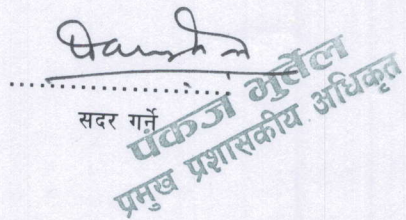 सदर गर्ने
पंकज भुर्तेल
प्रमुख प्रशासकीय अधिकृत